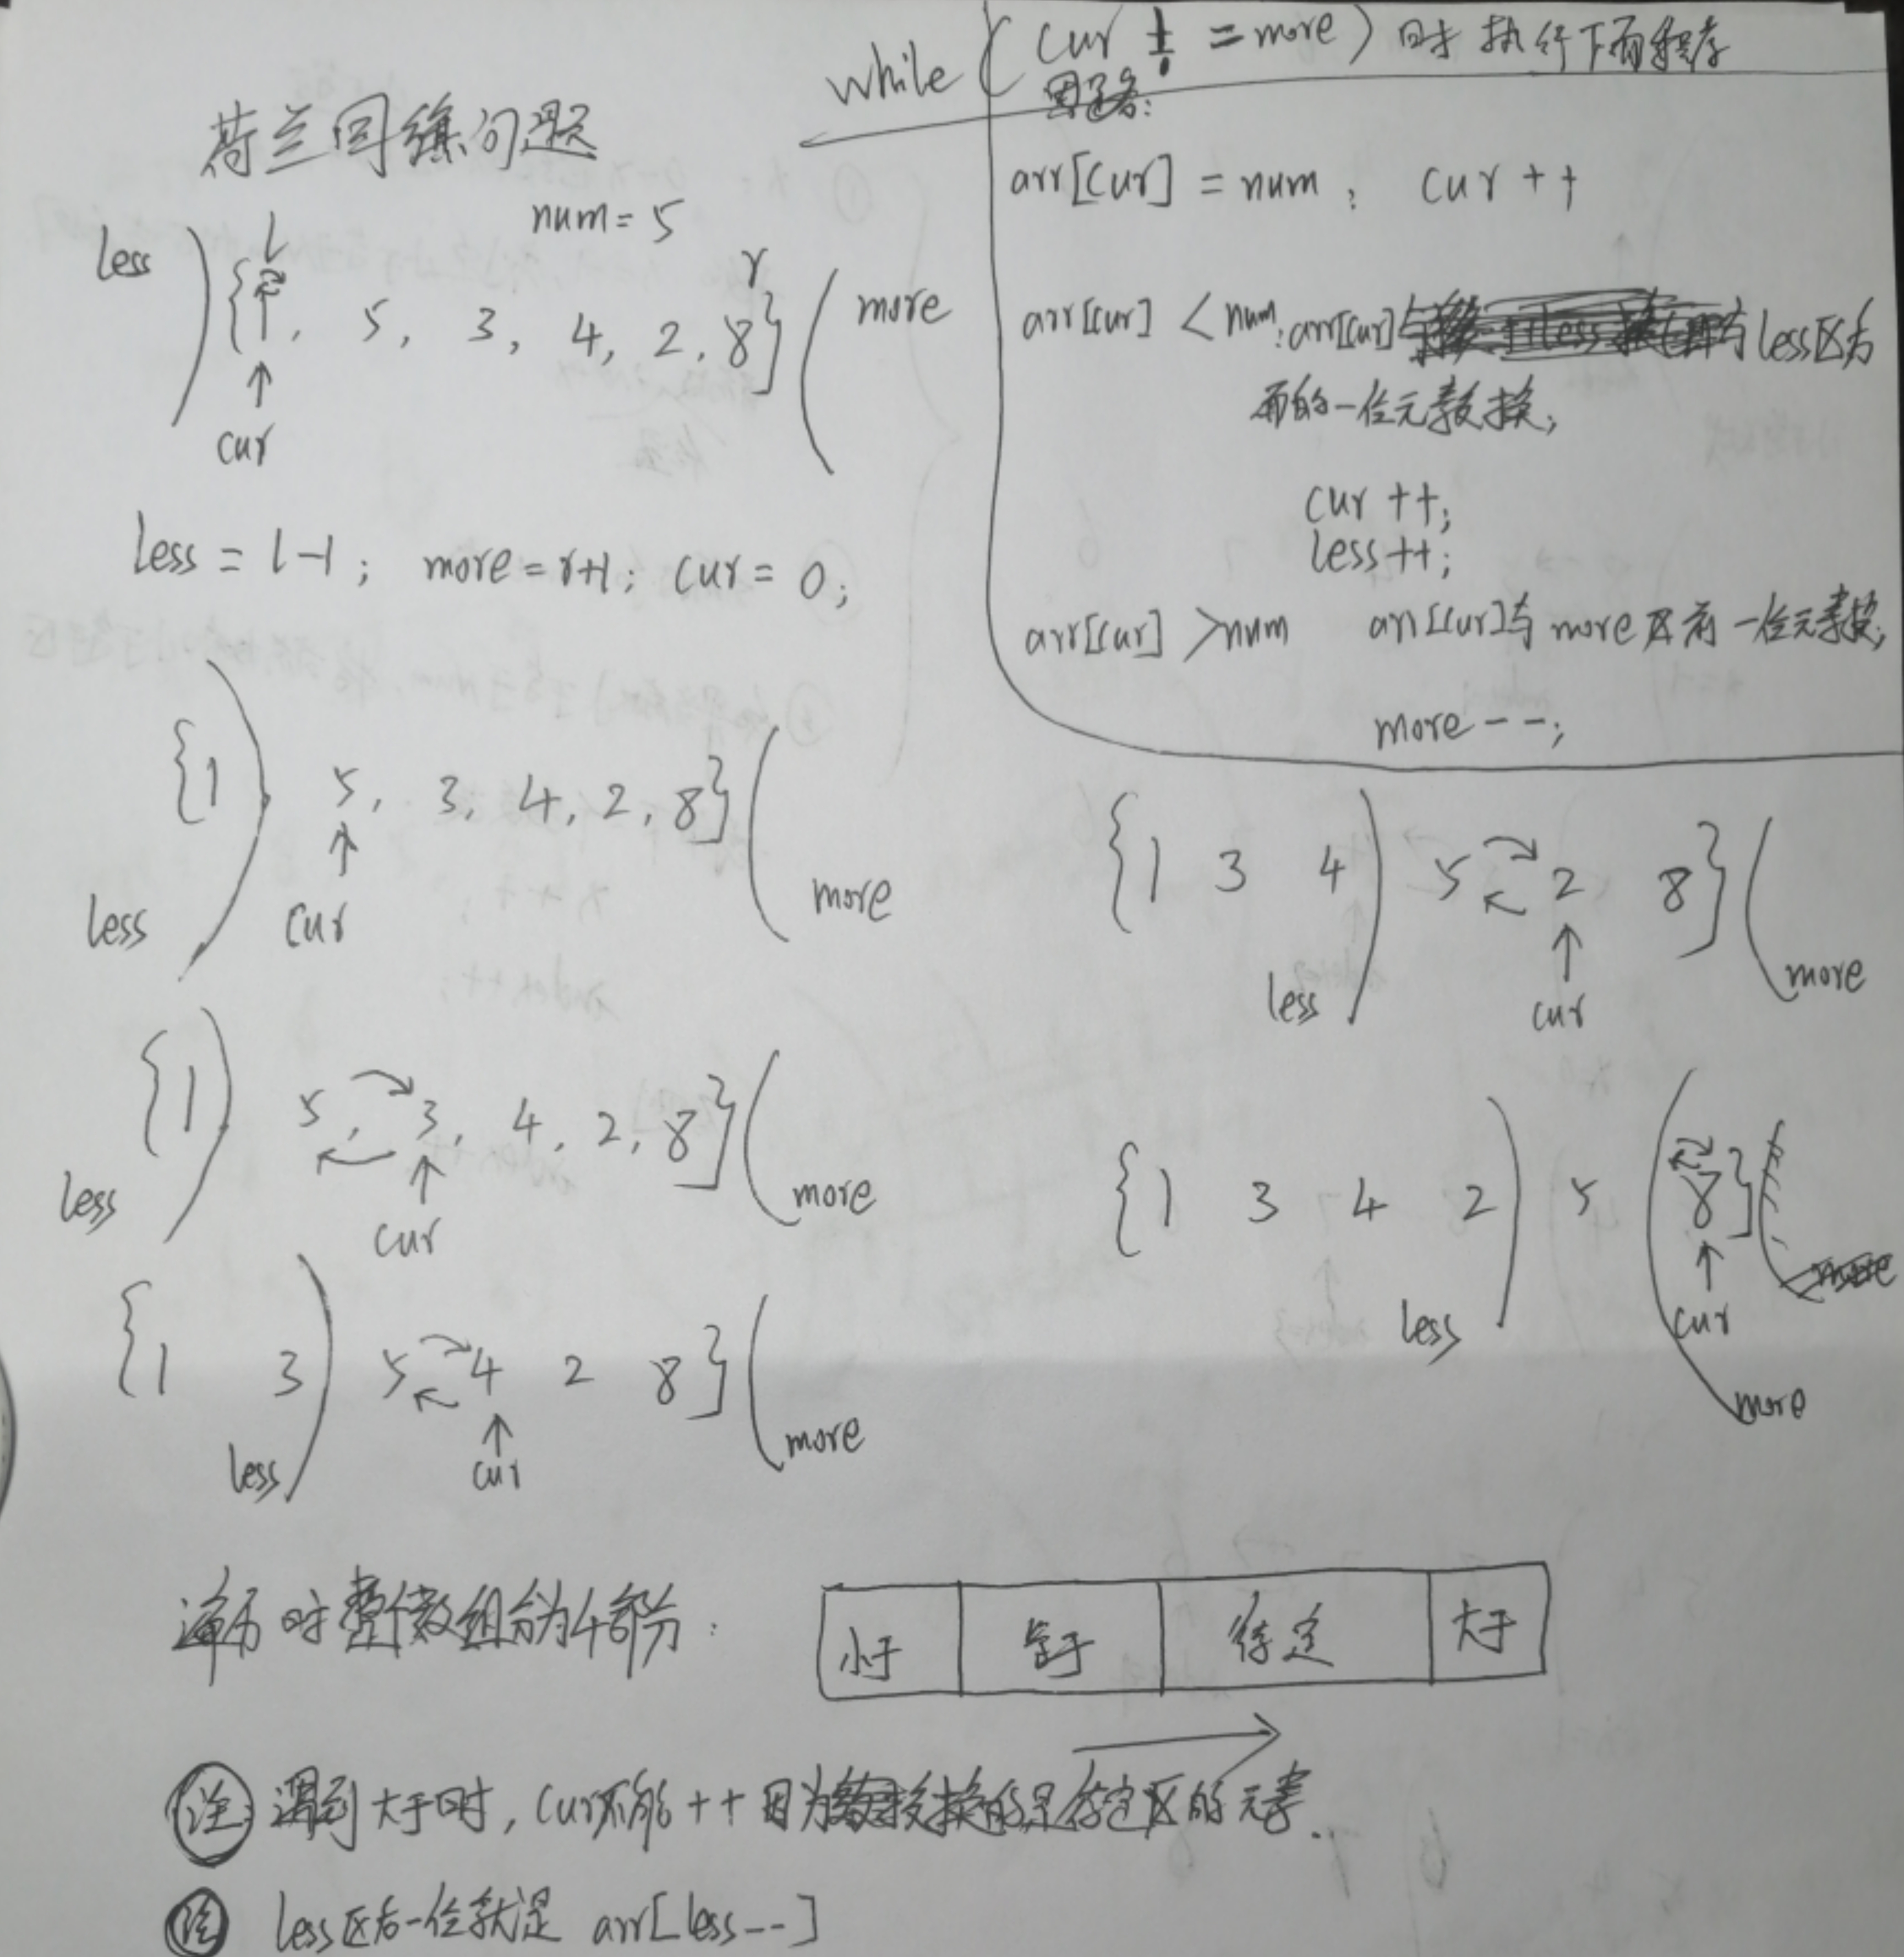 荷兰国旗问题
num = 5
less ) { 1, 5, 3, 4, 2, 8 } ( more
l
r
cur
less = l-1; more = r+1; cur = 0;
{ 1 ) 5, 3, 4, 2, 8 } (
less cur more
{ 1 ) 5, 3, 4, 2, 8 } (
less cur more
{ 1 3 ) 5 4 2 8 } (
less cur more
while ( cur != more ) 时 执行下面程序
思路:
arr[cur] = num ; cur ++
arr[cur] < num; arr[cur] 与 less区后
面的一位元素交换;
cur ++;
less ++;
arr[cur] > num arr[cur]与 more区前一位元素换;
more - -;
{ 1 3 4 ) 5 2 8 } (
less cur more
{ 1 3 4 2 ) 5 ( 8 }
less cur
more
遍历时整个数组分为4部分:
小于 等于 待定 大于
注 遇到大于时, cur不能 ++ 因为交换的是待定区的元素.
注 less区后一位就是 arr[less--]